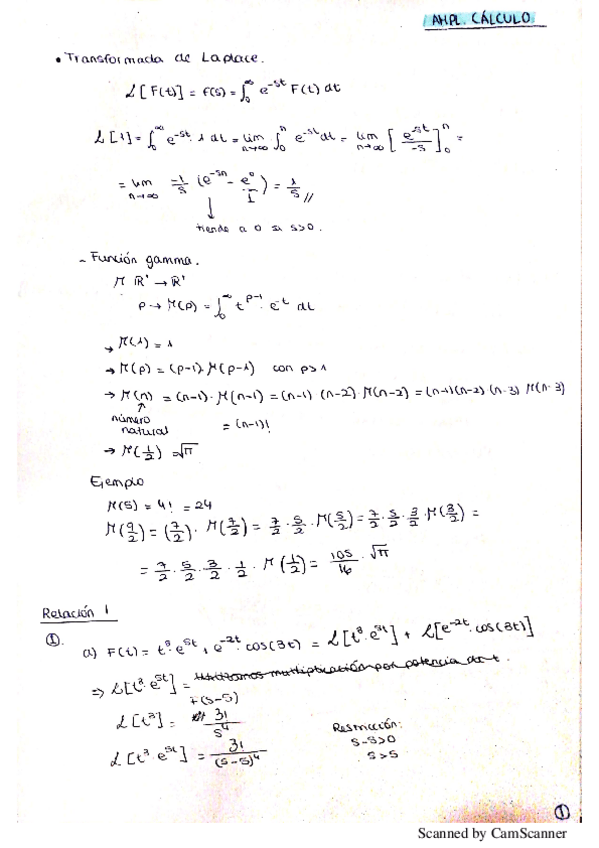 AMPL. CÁLCULO
• Transformada de Laplace.
L[F(t)] = f(s) = ∫₀^∞ e^-st F(t) dt
L[1] = ∫₀^∞ e^-st · 1 dt = lim n→∞ ∫₀^n e^-st dt = lim n→∞ [e^-st / -s]₀^n =
= lim n→∞ -1/s (e^-sn - e^0) = 1/s //
1
↓
tiende a 0 si s>0.
- Función gamma.
Γ R' → R'
p → Γ(p) = ∫₀^∞ t^p-1 · e^-t dt
→ Γ(1) = 1
→ Γ(p) = (p-1) · Γ(p-1) con p>1
→ Γ(n) = (n-1) · Γ(n-1) = (n-1) (n-2) · Γ(n-2) = (n-1)(n-2)(n-3) Γ(n-3)
↑
número natural = (n-1)!
→ Γ(1/2) = √π
Ejemplo
Γ(5) = 4! = 24
Γ(9/2) = (7/2) · Γ(7/2) = 7/2 · 5/2 · Γ(5/2) = 7/2 · 5/2 · 3/2 · Γ(3/2) =
= 7/2 · 5/2 · 3/2 · 1/2 · Γ(1/2) = 105/16 · √π
Relación 1
①.
a) F(t) = t³ · e^5t + e^-2t · cos(3t) = L[t³ · e^5t] + L[e^-2t · cos(3t)]
⇒ L[t³ · e^5t] = Utilizamos multiplicación por potencia de t.
f(s-5)
L[t³] = 3!/s⁴
L[t³ · e^5t] = 3!/(s-5)⁴
Restricción:
s-5>0
s>5
①
Scanned by CamScanner